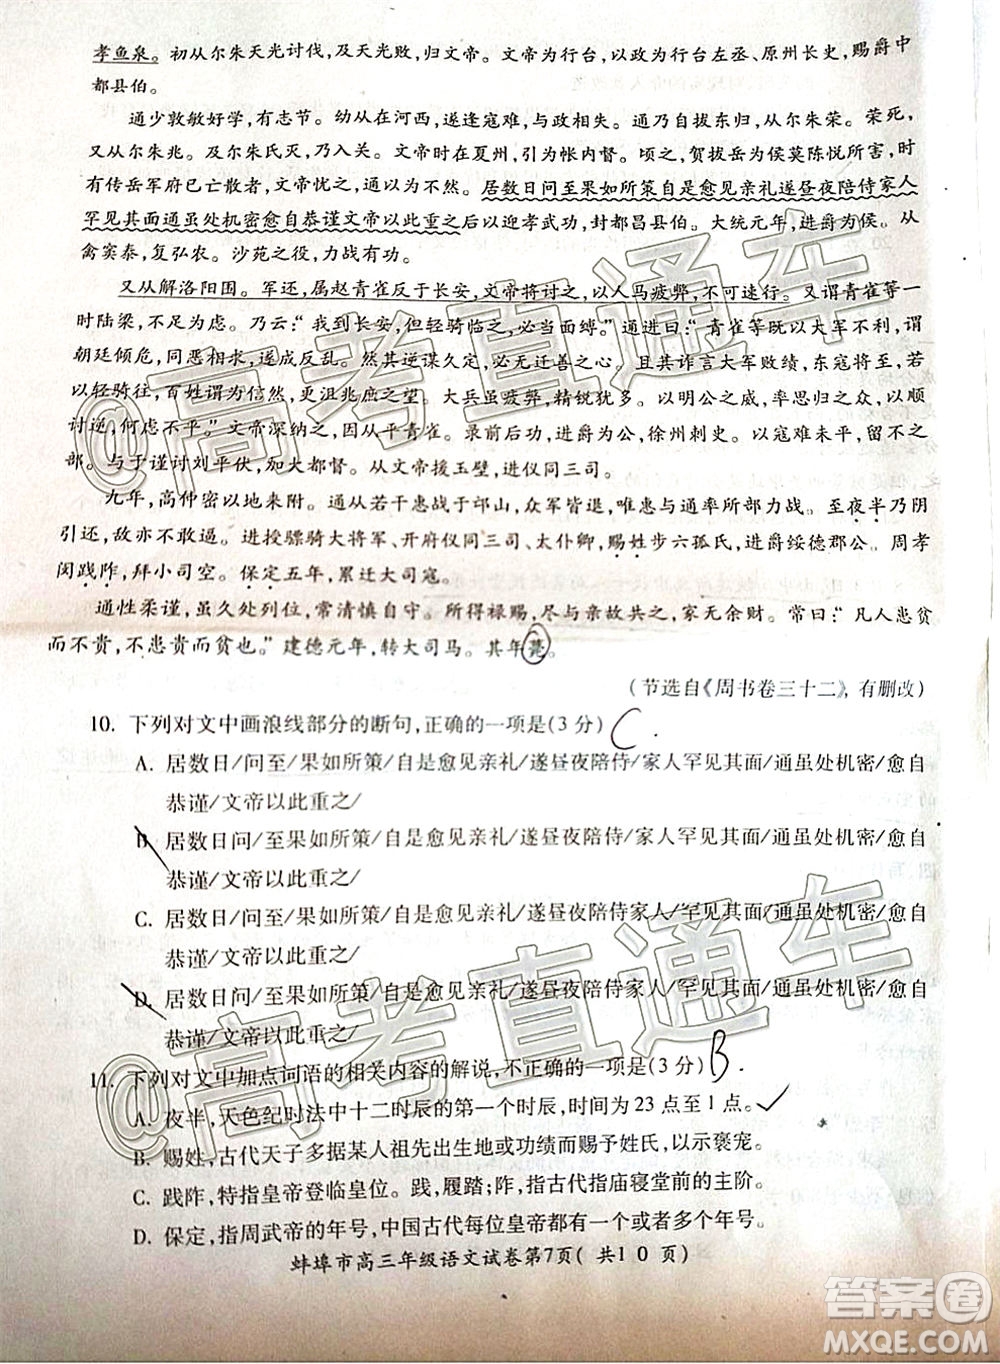 孝鱼泉。初从尔朱天光讨伐,及天光败,归文帝。文帝为行台,以政为行台左丞、原州长史,赐爵中
都县伯。
通少敦敏好学,有志节。幼从在河西,遂逢寇难,与政相失。通乃东归,从尔朱荣。荣死,
又从尔朱兆。及尔朱氏灭,乃入关。文帝时在夏州,引为帐内督。顷之,贺拔岳为侯莫陈悦所害,时
有传岳军府已亡散者,文帝忧之,通以为不然。居数日问至果如所策自是愈见亲礼遂昼夜陪侍家人
罕见其面通虽处机密愈自恭谨文帝以此重之后以迎孝武功,封都昌县伯。大统元年,进爵为侯。从
禽窦泰,复弘农。沙苑之役,力战有功。
又从解洛阳围。军还,属赵青雀反于长安,文帝将讨之,以人马疲弊,不可速行。又谓青雀等一
时陆梁,不足为虑。乃云:“我到长安,但轻骑临之,必当面缚。”通进曰:“青雀等既以大军不利,谓
朝廷倾危,同恶相求,遂成反乱。然其逆谋久定,必无迁善之心。且其诈言大军败绩,东寇将至,今
以轻骑往,百姓谓为信然,更沮兆庶之望。大兵虽疲弊,精锐犹多。以明公之威,率思归之众,以顺
讨逆,何虑不平。”文帝深纳之,因从平青雀。录前后功,进爵为公,徐州刺史。以寇难未平,留不之
部。与于谨讨刘平伏,加大都督。从文帝援玉壁,进仪同三司。
九年,高仲密以地来附。通从若干惠战于邙山,众军皆退,唯惠与通率所部力战。至夜半乃阴
引还,敌亦不敢逼。进授骠骑大将军、开府仪同三司、太仆卿,赐姓步六孤氏,进爵绥德郡公。周孝
闵践阼,拜小司空。保定五年,累迁大司寇。
通性柔谨,虽久处列位,常清慎自守。所得禄赐,尽与亲故共之,家无余财。常曰:“凡人患贫
而不贵,不患贵而贫也。”建德元年,转大司马。其年薨。
(节选自《周书卷三十二》,有删改)
10. 下列对文中画浪线部分的断句,正确的一项是(3 分) C.
A. 居数日/问至/果如所策/自是愈见亲礼/遂昼夜陪侍/家人罕见其面/通虽处机密/愈自
恭谨/文帝以此重之/
B. 居数日问/至果如所策/自是愈见亲礼/遂昼夜陪侍/家人罕见其面/通虽处机密/愈自
恭谨/文帝以此重之/
C. 居数日/问至/果如所策/自是愈见亲礼/遂昼夜陪侍家人/罕见其面/通虽处机密/愈自
恭谨/文帝以此重之/
D. 居数日问/至果如所策/自是愈见亲礼/遂昼夜陪侍家人/罕见其面/通虽处机密/愈自
恭谨/文帝以此重之/
11. 下列对文中加点词语的相关内容的解说,不正确的一项是(3 分) B.
A. 夜半,天色纪时法中十二时辰的第一个时辰,时间为 23 点至 1 点。
B. 赐姓,古代天子多据某人祖先出生地或功绩而赐予姓氏,以示褒宠。
C. 践阼,特指皇帝登临皇位。践,履踏;阼,古代指庙寝堂前的主阶。
D. 保定,指周武帝的年号,中国古代每位皇帝都有多个年号。
蚌埠市高三年级语文试卷第7页( 共10 页)
@高考直通车
@高考直通车
答案圈
MXQE.COM